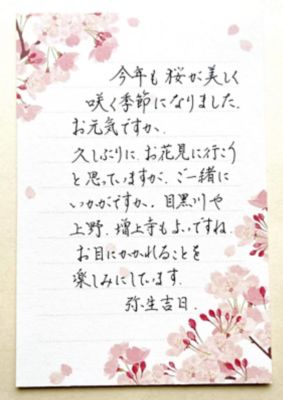 今年も桜が美しく
咲く季節になりました。
お元気ですか、
久しぶりに、お花見に行こう
と思っていますが、ご一緒に
いかがですか、目黒川や
上野、増上寺もよいですね、
お目にかかれることを
楽しみにしています、
弥生吉日、